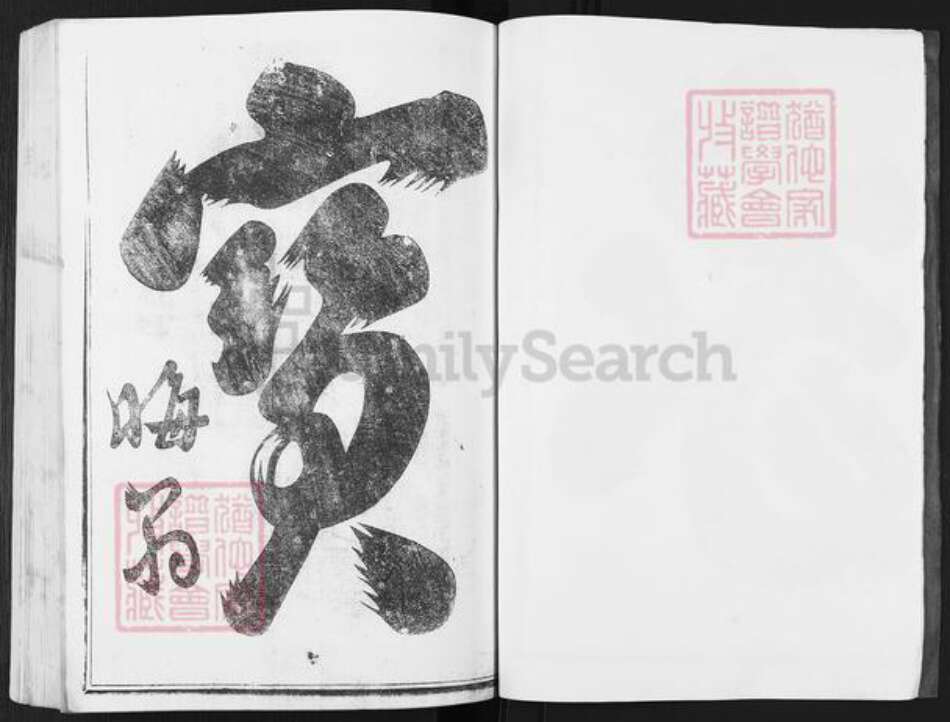 寶
晦翁
猶他家
譜學會
收藏
猶他家
譜學會
收藏
FamilySearch